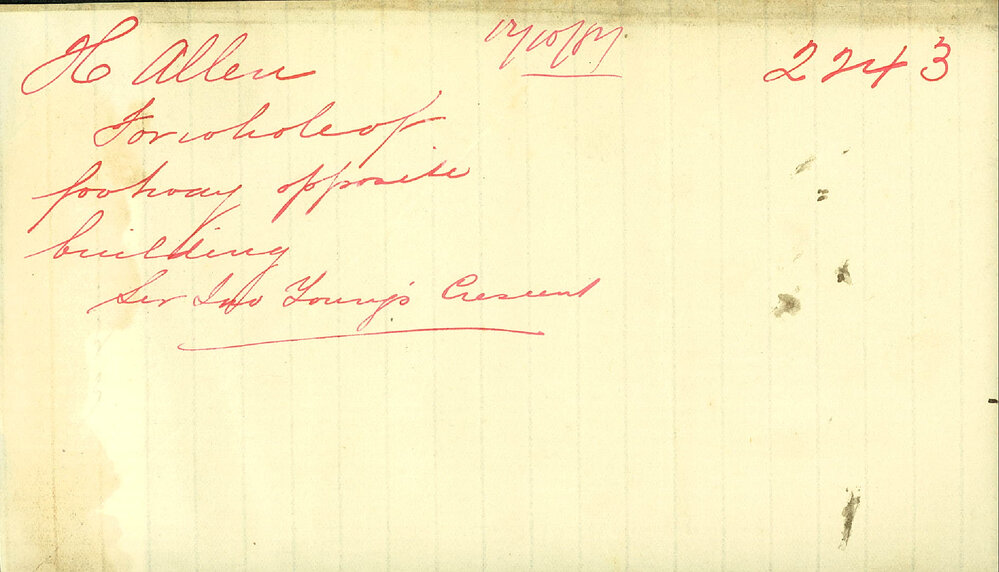 H Allen 17/10/87. 2243
For whole of
footway opposite
building
Sir Jno Young's Crescent